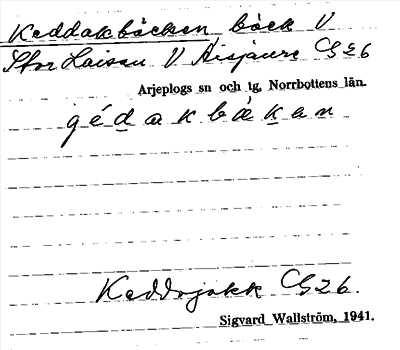 Keddakbäcken bäck V
Stor Laisan V Aisjaure G26
Arjeplogs sn och tg, Norrbottens län.
gédakbäkan
Keddojokk G26.
Sigvard Wallström, 1941.